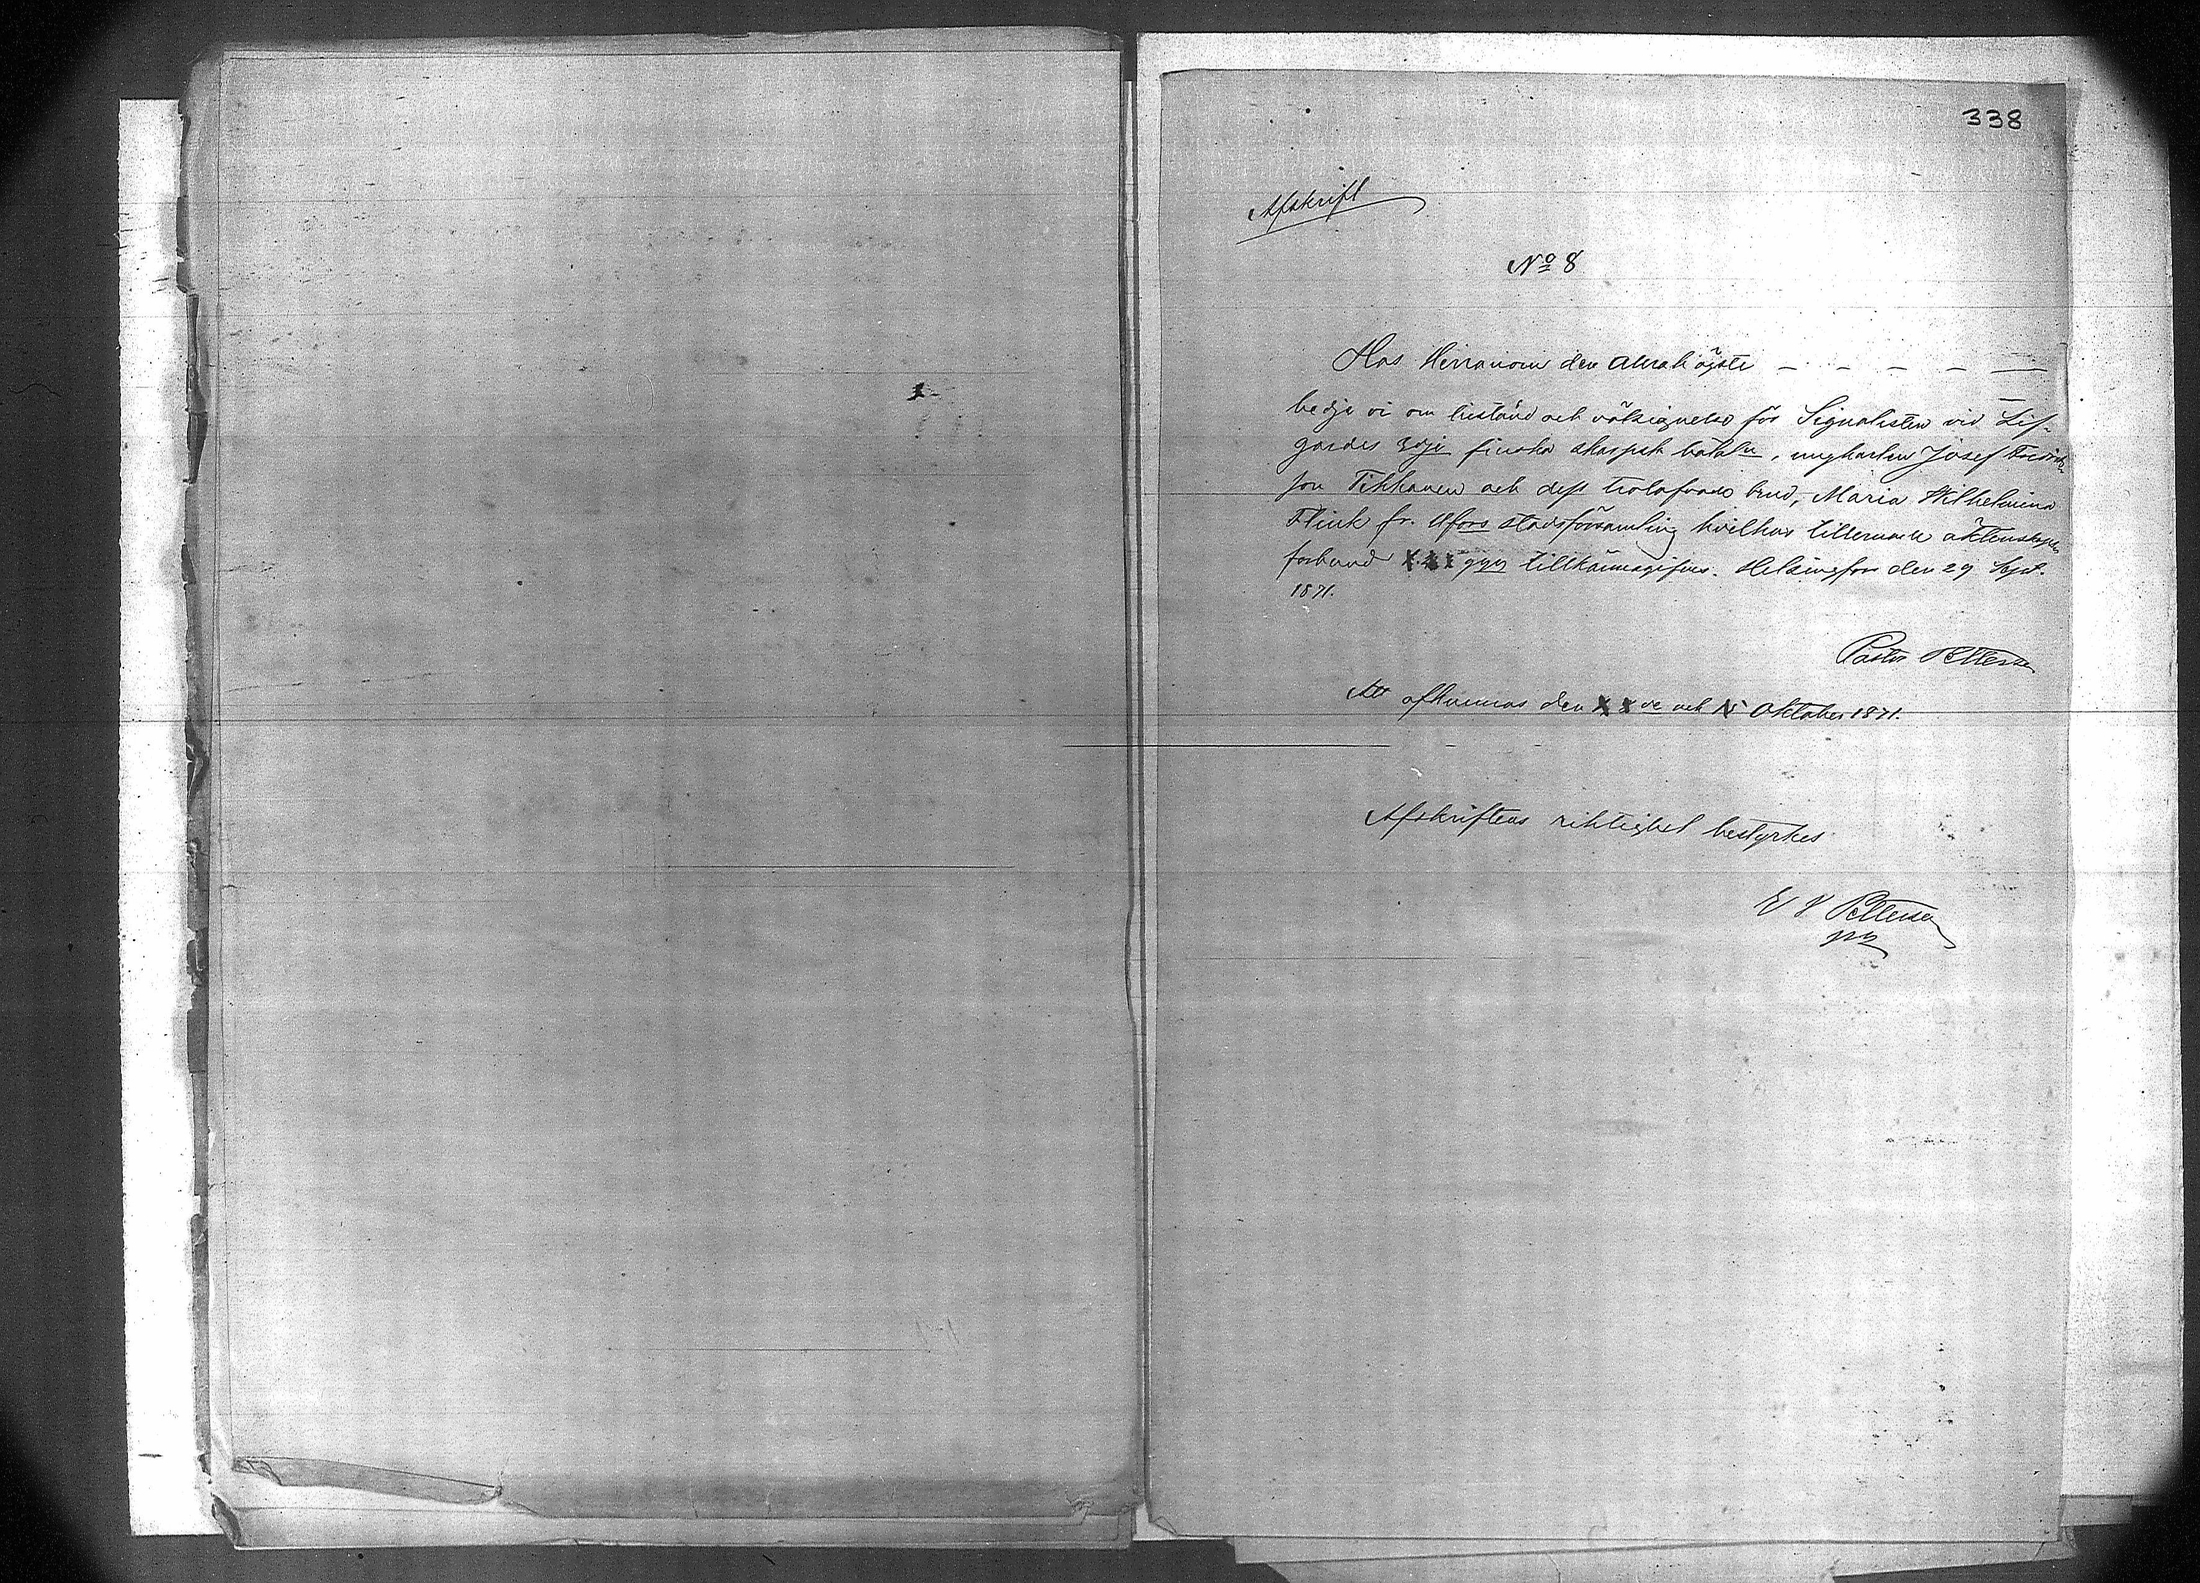 338
Afskrift
No 8
Hos Herranom den Allrahögste — — — — —
bedje vi om bistånd och välsignelse för Signalisten vid Lif-
gardes 3dje finska skarpsk. bataln, ungkarlen Josef Fredriks
son Tikkanen och dess trolofvade brud, Maria Wilhelmina
Flink fr. Hfors stadsförsamling hvilkas tillernade äktenskaps
förbund X X X ggr tillkännagifves. Helsingfors den 29 Sept.
1871.
Pastor Pettersson
Att afkunnas den X X de och 15 Oktober 1871.
Afskriftens riktighet bestyrkes
Pettersson